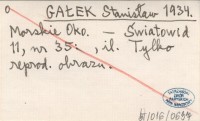 GAŁEK Stanisław 1934.
Morskie Oko. — Światowid
11, nr 35: , il. Tylko
reprod. obrazu.